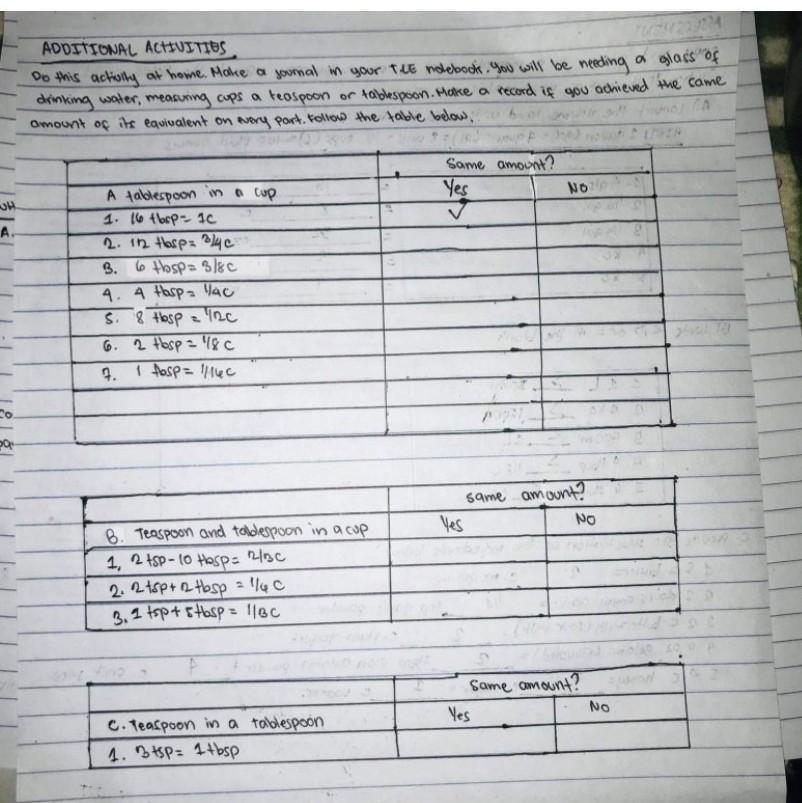 ADDITIONAL ACTIVITIES
Do this activity at home. Make a journal in your TLE notebook. You will be needing a glass of
drinking water, measuring cups a teaspoon or tablespoon. Make a record if you achieved the same
amount of its equivalent on every part. Follow the table below.
Same amount?
A tablespoon in a cup Yes No
1. 16 tbsp = 1c ✓
2. 12 tbsp = 3/4 c
3. 6 tbsp = 3/8 c
4. 4 tbsp = 1/4 c
5. 8 tbsp = 1/2 c
6. 2 tbsp = 1/8 c
7. 1 tbsp = 1/16 c
same amount?
B. Teaspoon and tablespoon in a cup Yes No
1, 2 tsp - 10 tbsp = 2/3 c
2. 2 tsp + 2 tbsp = 1/4 c
3. 1 tsp + 5 tbsp = 1/3 c
same amount?
C. Teaspoon in a tablespoon Yes No
1. 3 tsp = 1 tbsp